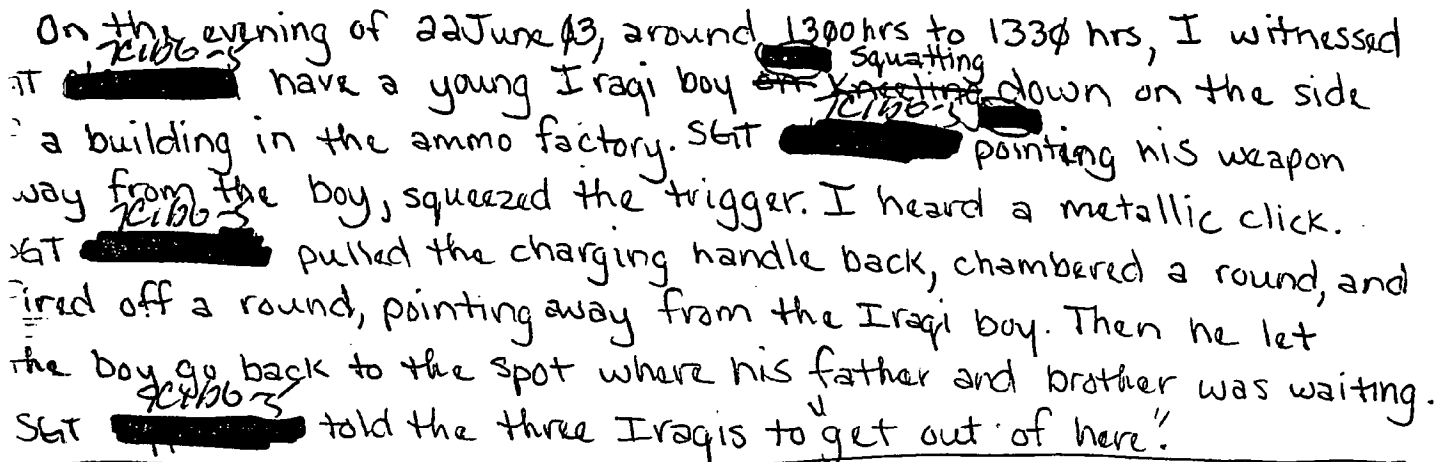 On the evening of 22 June 03, around 1300 hrs to 1330 hrs, I witnessed
squatting
have a young Iraqi boy down on the side
a building in the ammo factory. SGT pointing his weapon
way from the boy, squeezed the trigger. I heard a metallic click.
SGT pulled the charging handle back, chambered a round, and
fired off a round, pointing away from the Iraqi boy. Then he let
the boy go back to the spot where his father and brother was waiting.
SGT told the three Iraqis to "get out of here".